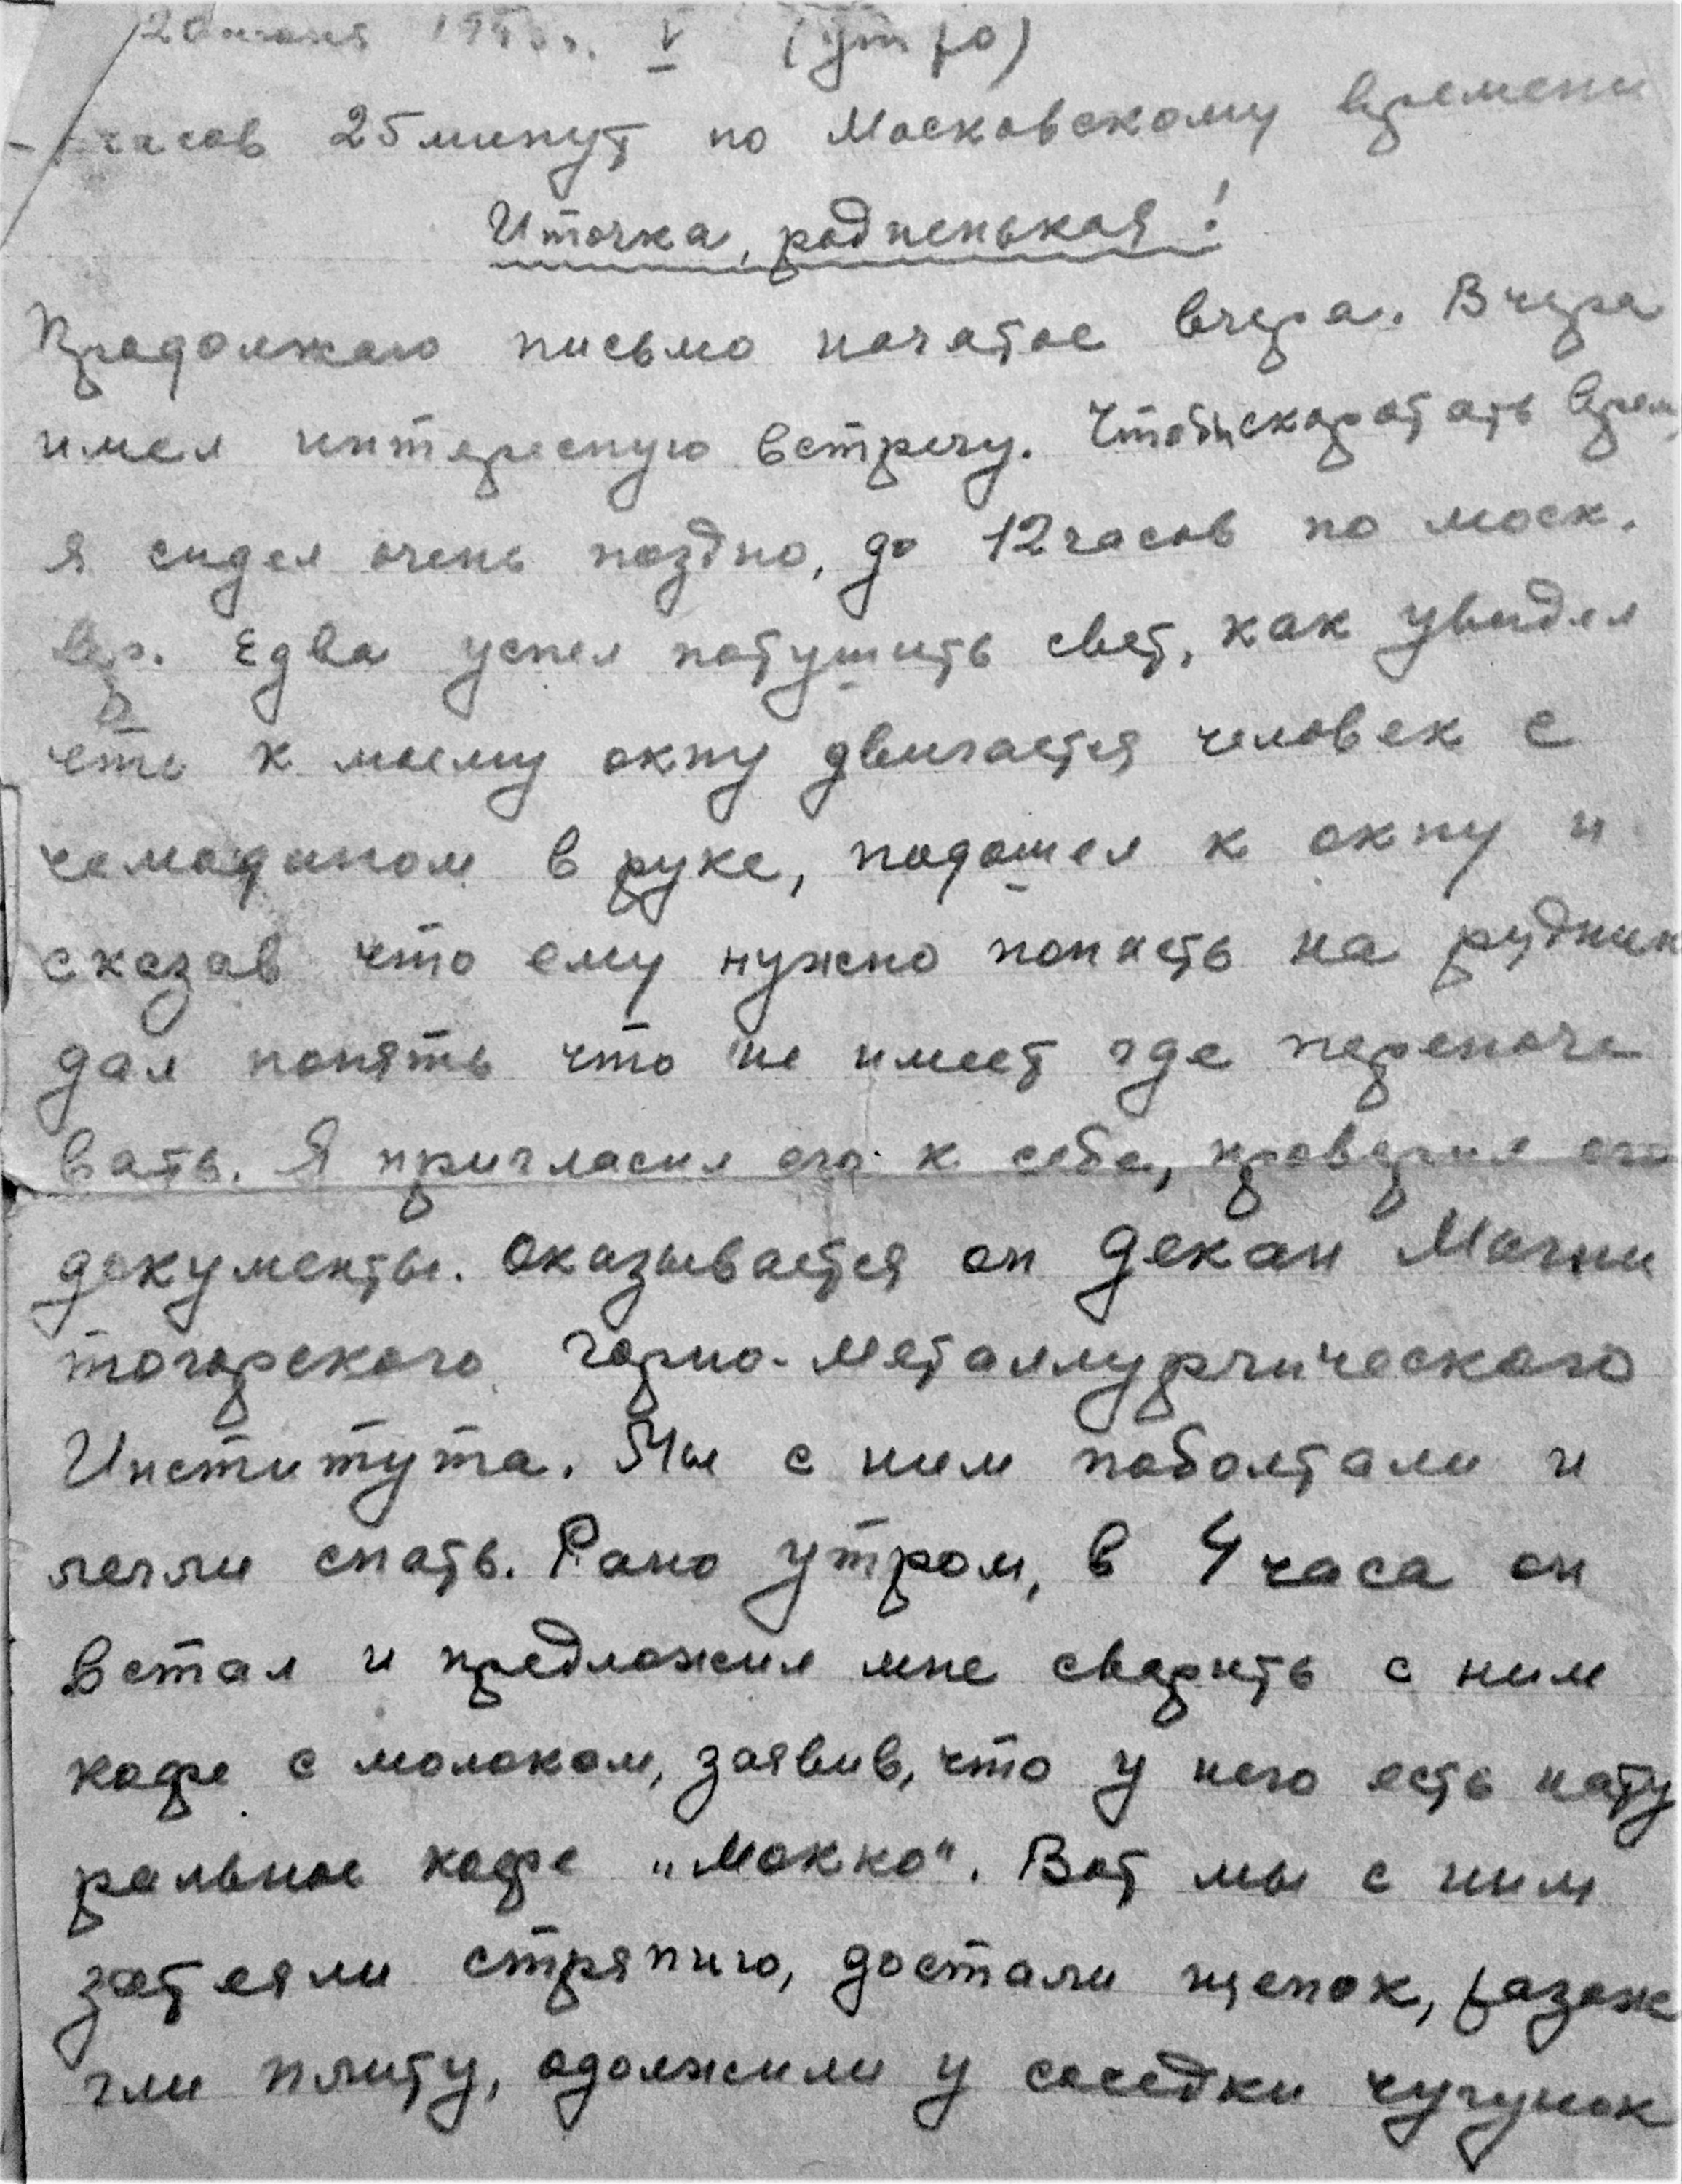 V (утро)
часов 25 минут по Московскому времени
Иточка, родненькая!
Продолжаю письмо начатое вчера. Вчера
имел интересную встречу. Чтобы скоротать
я сидел очень поздно, до 12 часов по моск.
вр. Едва успел потушить свет, как увидел
что к моему окну двигается человек с
чемоданом в руке, подошел к окну и
сказав что ему нужно попасть на рудник
дал понять что не имеет где переноче-
вать. Я пригласил его к себе, проверил его
документы. Оказывается он декан Магни
тогорского горно-металлургического
Института. Мы с ним поболтали и
легли спать. Рано утром, в 4 часа он
встал и предложил мне сварить с ним
кофе с молоком, заявив, что у него есть нату
ральное кофе „Мокко". Вот мы с ним
затеяли стряпню, достали щепок, разож
гли плиту, одолжили у соседки чугунок